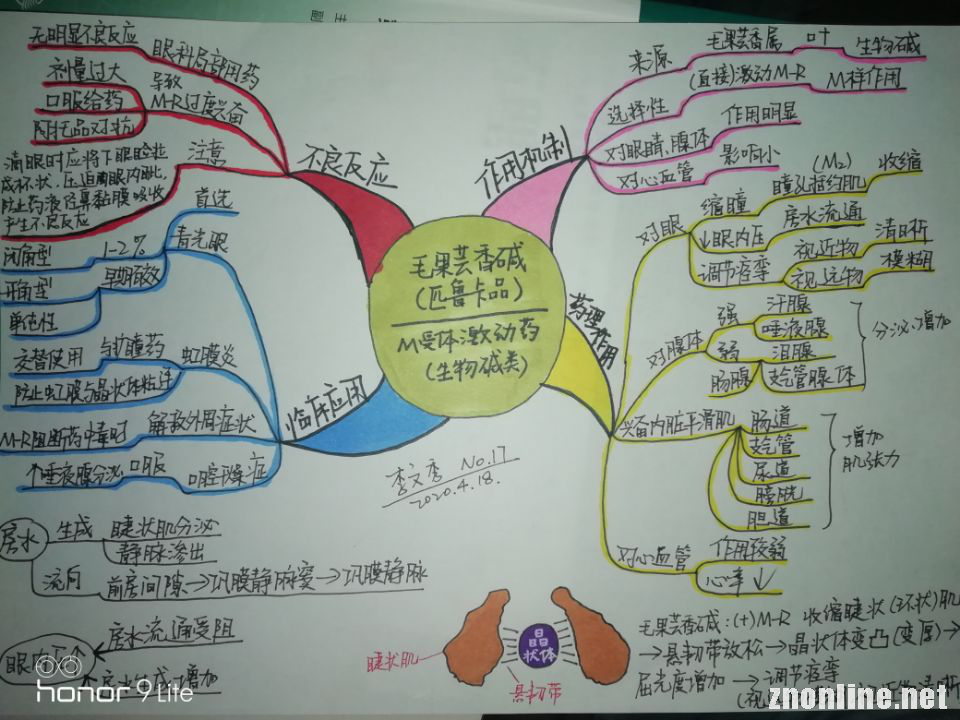 毛果芸香碱
(匹鲁卡品)
M受体激动药
(生物碱类)
不良反应
眼科局部用药
无明显不良反应
剂量过大
口服给药
导致
M-R过度兴奋
阿托品对抗
注意
滴眼时应将下眼睑拉
成杯状,压迫内眦,
防止药液经鼻黏膜吸收
产生不良反应
作用机制
来源
毛果芸香属
叶
生物碱
选择性
(直接)激动M-R
M样作用
对眼睛、腺体
作用明显
对心血管
影响小
药理作用
对眼
缩瞳
瞳孔括约肌
(M₂)
收缩
↓眼内压
房水流通
调节痉挛
视近物
清晰
视远物
模糊
对腺体
强
汗腺
唾液腺
弱
泪腺
肠腺
支气管腺体
分泌↓增加
兴奋内脏平滑肌
肠道
支气管
尿道
膀胱
胆道
增加
肌张力
对心血管
作用较弱
心率↓
临床应用
青光眼
首选
闭角型
1-2%
开角型
早期有效
单纯性
虹膜炎
与扩瞳药
交替使用
防止虹膜与晶状体粘连
M-R阻断药中毒时
解救外周症状
口腔干燥症
口服
↑唾液腺分泌
李文秀 No.17
2020.4.18.
房水
生成
睫状肌分泌
静脉渗出
流向
前房间隙→巩膜静脉窦→巩膜静脉
房水流通受阻
增加
睫状肌
晶
状体
悬韧带
毛果芸香碱:(+)M-R 收缩睫状(环状)肌
→悬韧带放松→晶状体变凸(变厚)→
屈光度增加→调节痉挛
honor 9 Lite
znonline.net